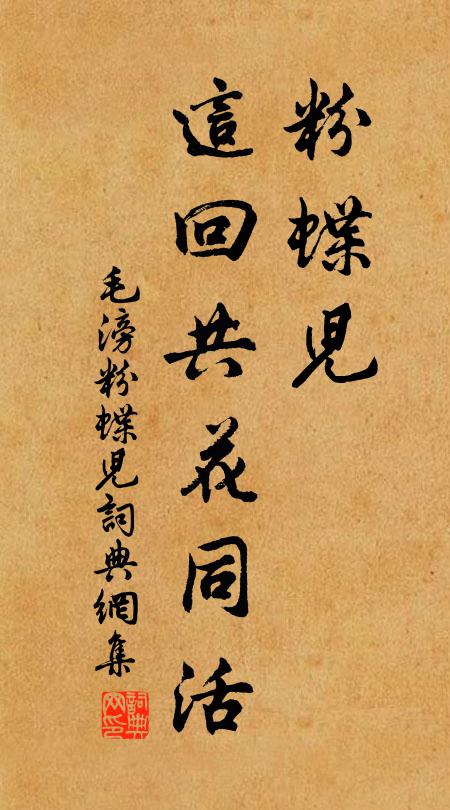 粉蝶兒
這回共花同活
毛滂粉蝶兒詞典網集
詞典网印